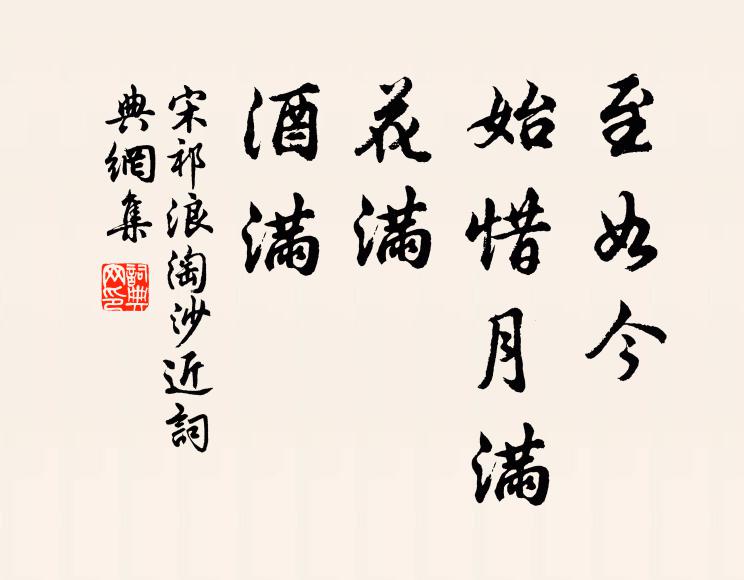 至如今
始惜月滿
花滿
酒滿
宋祁浪淘沙近詞
典網集
詞典網印